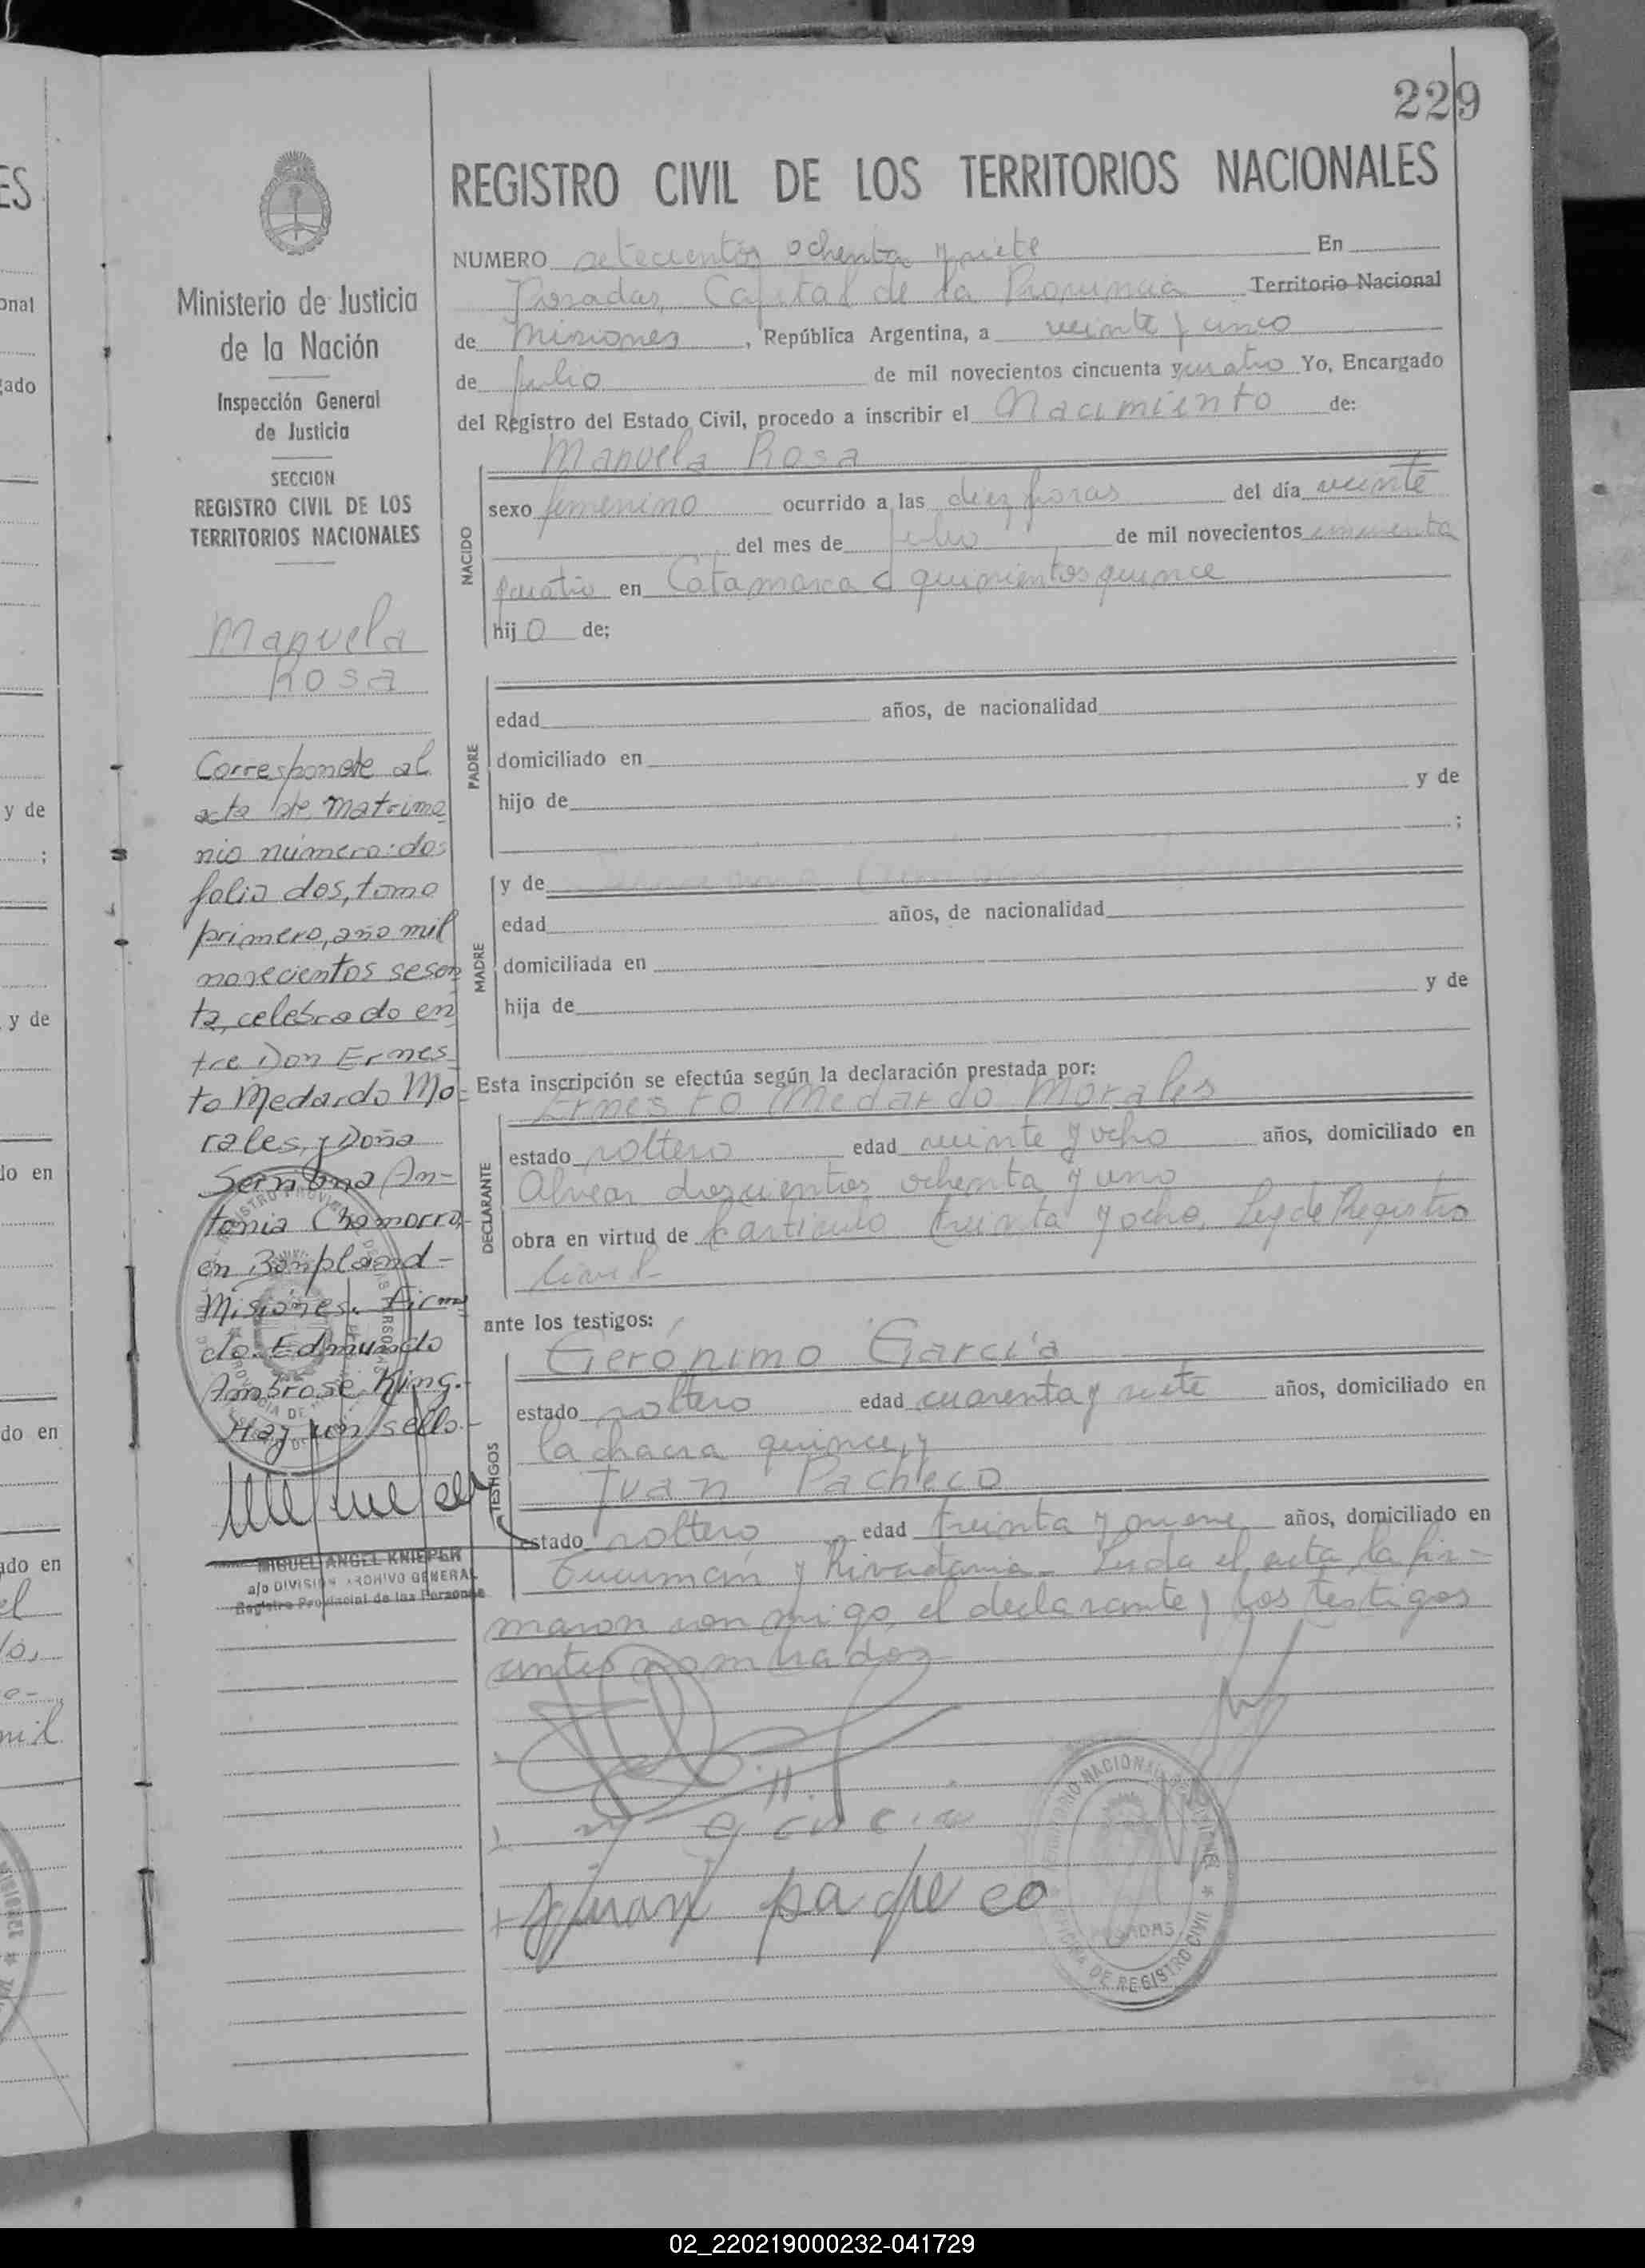 229
REGISTRO CIVIL DE LOS TERRITORIOS NACIONALES
Ministerio de Justicia
de la Nación
Inspección General
de Justicia
SECCION
REGISTRO CIVIL DE LOS
TERRITORIOS NACIONALES
Manuela
Rosa
Corresponde al
acta de matrimo
nio número: dos
folio dos, tomo
primero, año mil
novecientos sesen
ta, celebrado en
tre Don Ernes
to Medardo Mo-
rales, y Doña
An-
tonia Chamorro,
en Bonpland-
Misiones. Firma
do. Edmundo
Ambrose King.-
Hay un sello.-
MIGUEL ANGEL KNIEPER
a/o DIVISION ARCHIVO GENERAL
Registro Provincial de las Personas
NUMERO setecientos ochenta y siete En
Posadas, Capital de la Provincia Territorio Nacional
de Misiones, República Argentina, a veinte y cinco
de julio de mil novecientos cincuenta y cuatro Yo, Encargado
del Registro del Estado Civil, procedo a inscribir el Nacimiento de:
Manuela Rosa
NACIDO
sexo femenino ocurrido a las diez horas del día veinte
del mes de julio de mil novecientos cincuenta
y cuatro en Catamarca quinientos quince
hijo de;
PADRE
edad años, de nacionalidad
domiciliado en
hijo de y de
;
MADRE
y de
edad años, de nacionalidad
domiciliada en
hija de y de
Esta inscripción se efectúa según la declaración prestada por:
Ernesto Medardo Morales
DECLARANTE
estado soltero edad veinte y ocho años, domiciliado en
Alvear doscientos ochenta y uno
obra en virtud de artículo treinta y ocho, Ley de Registro
Civil
ante los testigos:
Gerónimo García
TESTIGOS
estado soltero edad cuarenta y siete años, domiciliado en
la chacra quince, y
Juan Pacheco
estado soltero edad treinta y nueve años, domiciliado en
Tucumán y Rivadavia. Leida el acta la fir-
maron conmigo, el declarante y los testigos
antes nombrados
Juan pa che co
POSADAS
DE REGISTRO CIVIL
02_220219000232-041729